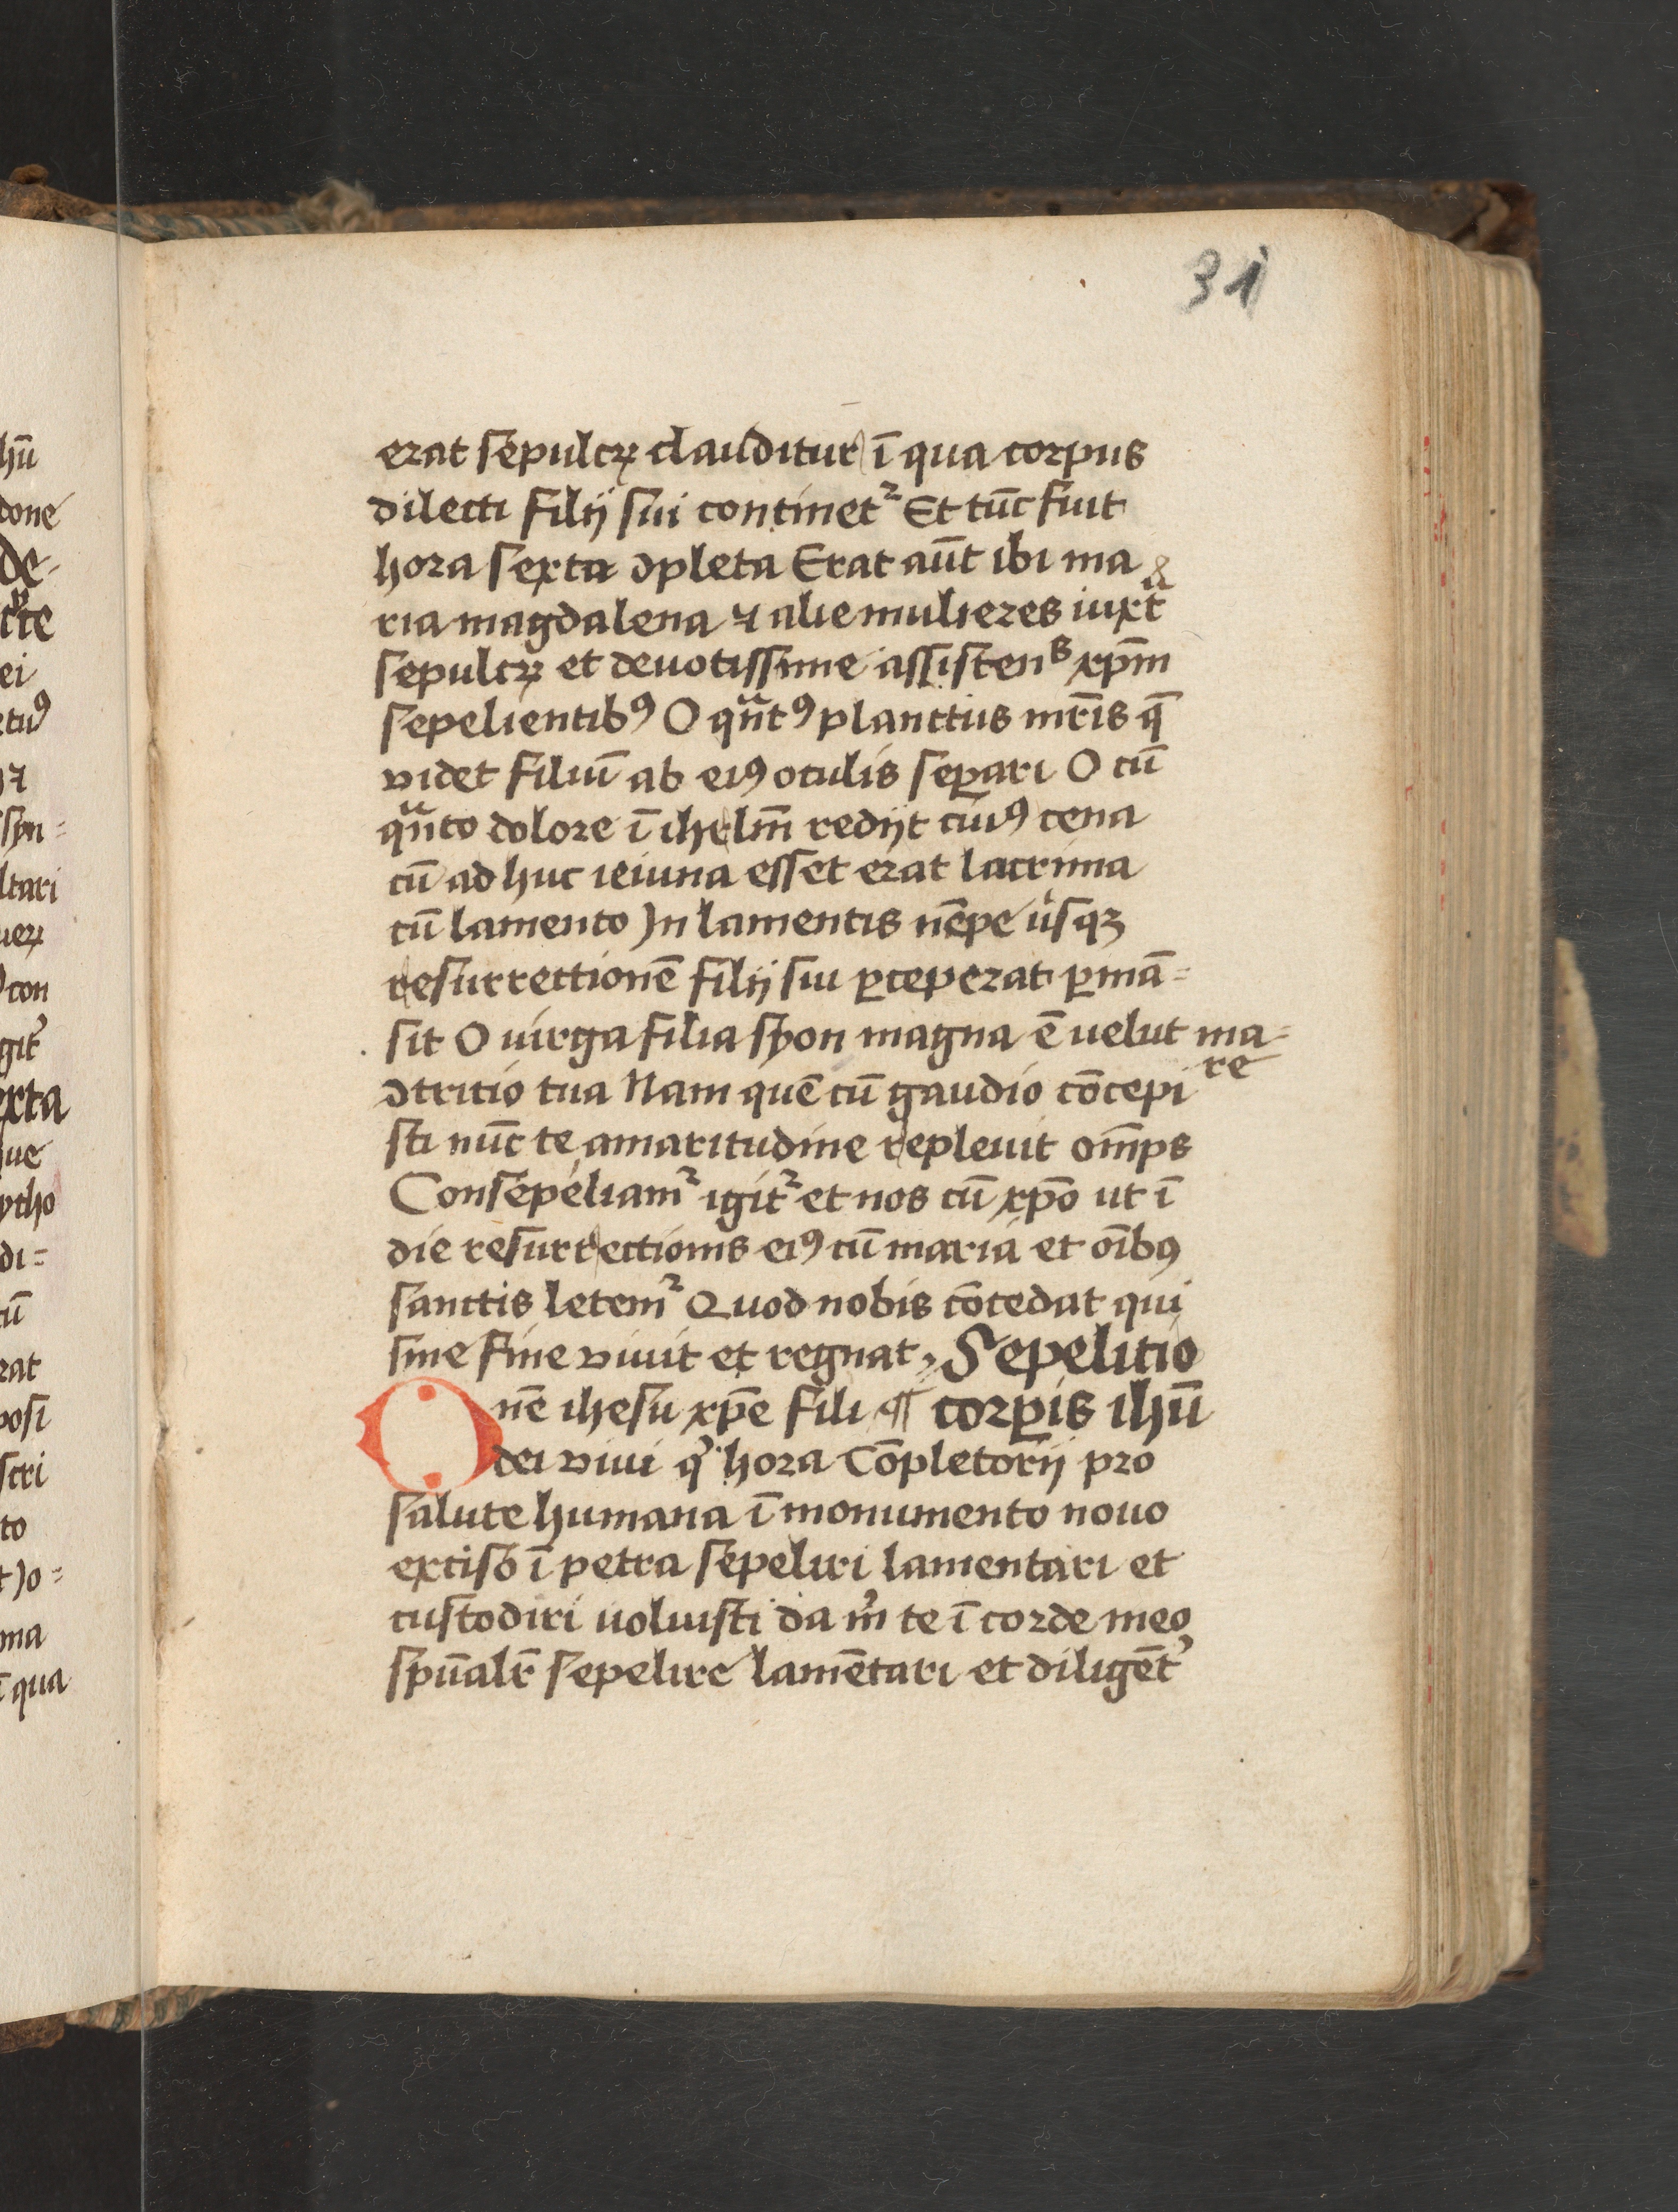 31
erat sepulcꝝ clauditur ī qua corpus
dilecti filij sui continetᷣ Et tūc fuit
hora sexta ꝯpleta Erat aūt ibi ma
ria magdalena ⁊ alie mulieres iuxtͣ
sepulcꝝ et deuotissime assistenˢ xp̄m
sepelientibꝰ O qͣntꝰ planctus mr̄is q̄
videt filiū ab eiꝰ oculis seꝑari O cū
qͣnto dolore ī ihrlm̄ redijt cuiꝰ cena
cū ad huc ieiuna esset erat lacrima
cū lamento In lamentis nēpe usqꝫ
resurrectionē filij sui ꝑceperat ꝑmā=
sit O uirga filia syon magna ē uelut ma=
re
ꝯtritio tua Nam quē cū gaudio cōcepi
sti nūc te amaritudine repleuit om̄ps
Consepeliamᷣ igitᷣ et nos cū xp̄o ut ī
die resurrectionis eiꝰ cū maria et oībꝰ
sanctis letemᷣ Quod nobis cōcedat qui
sine fine viuit et regnat, Sepelitio
One ihesu xp̄e fili ¶ corꝑis ihū
dei viui qͥ hora Cōpletorij pro
salute humana ī monumento nouo
exciso ī petra sepeliri lamentari et
custodiri uoluisti da mͥ te ī corde meo
spūalr̄ sepelire lamētari et diligēt᾽